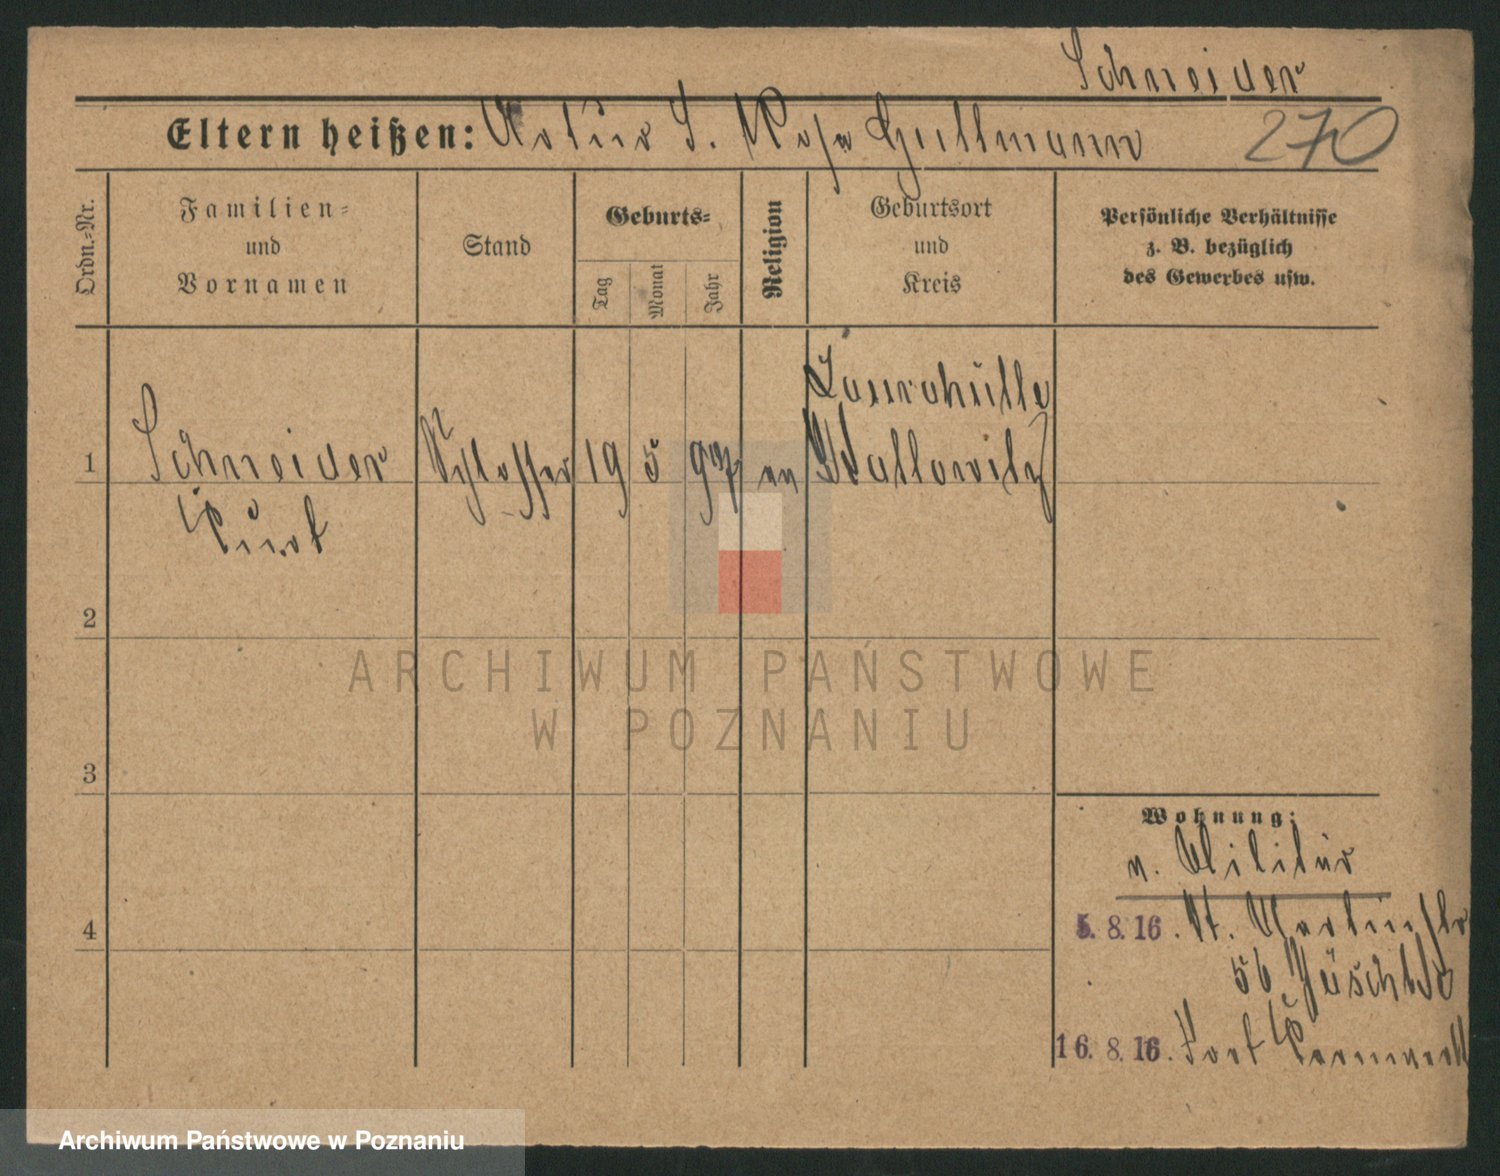 Schneider
Eltern heißen: Artur S. Rosa Guttmann 270
Ordn.-Nr.
Familien-
und
Vornamen
Stand
Geburts-
Tag
Monat
Jahr
Religion
Geburtsort
und
Kreis
Persönliche Verhältnisse
z. B. bezüglich
des Gewerbes usw.
Laurahütte
1 Schneider Schlosser 19 5 97 Kattowitz
Kurt
2
3
4
Wohnung:
v. Militär
5. 8. 16. St. Martinstr
56
16. 8. 16. Fort
ARCHIWUM PAŃSTWOWE
W POZNANIU
Archiwum Państwowe w Poznaniu